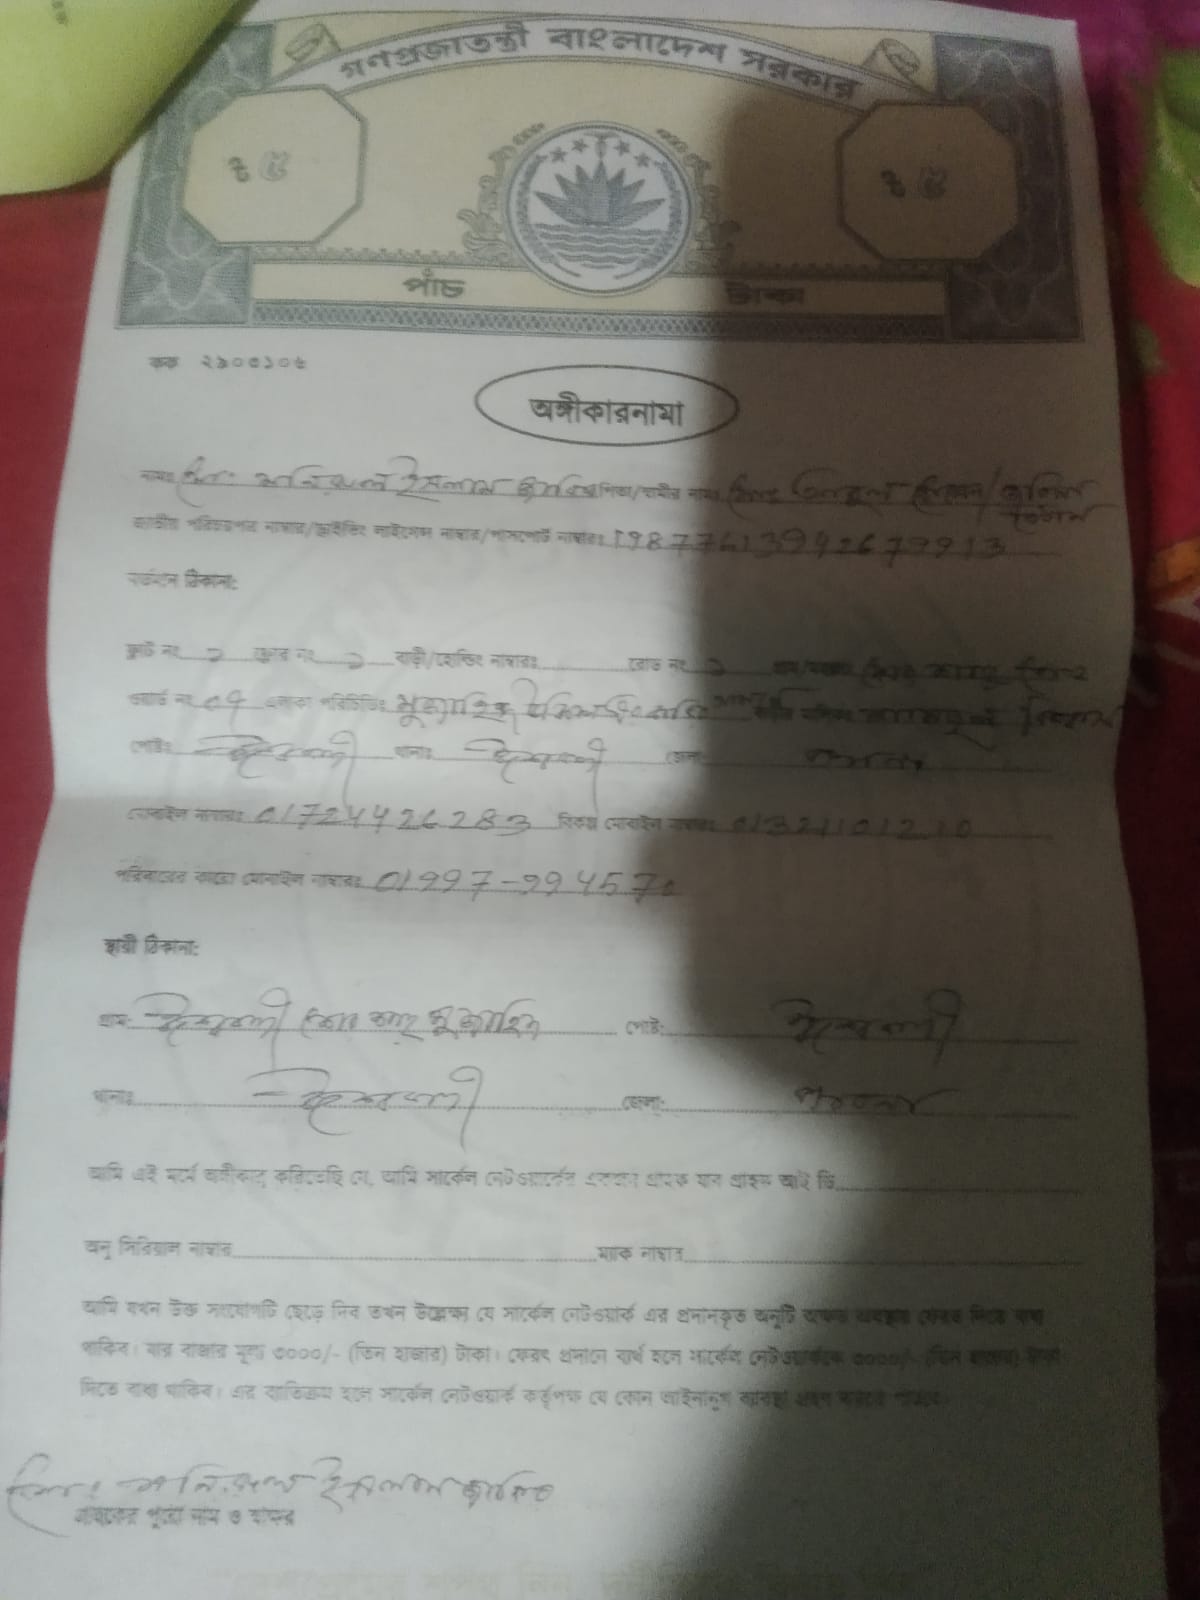 গণপ্রজাতন্ত্রী বাংলাদেশ সরকার
৳ ৫ ৳ ৫
পাঁচ টাকা
কক ২৯০৩১০৫
অঙ্গীকারনামা
নামঃ মোঃ মনিরুল ইসলাম পিতা/স্বামীর নামঃ
জাতীয় পরিচয়পত্র নাম্বার/ড্রাইভিং লাইসেন্স নাম্বার/পাসপোর্ট নাম্বারঃ 19877613942679913
বর্তমান ঠিকানা:
ফ্লাট নং ১ ফ্লোর নং ১ বাড়ী/হোল্ডিং নাম্বারঃ রোড নং ১
ওয়ার্ড নং ০৭ এলাকা পরিচিতিঃ
পোষ্টঃ ঈশ্বরদী থানাঃ ঈশ্বরদী জেলাঃ পাবনা
মোবাইল নাম্বারঃ 01724426283 বিকল্প মোবাইল নাম্বারঃ 01321101210
পরিবারের কারো মোবাইল নাম্বারঃ 01997-994570
স্থায়ী ঠিকানা:
গ্রামঃ ঈশ্বরদী পোষ্টঃ ঈশ্বরদী
থানাঃ ঈশ্বরদী জেলাঃ পাবনা
আমি এই মর্মে অঙ্গীকার করিতেছি যে, আমি সার্কেল নেটওয়ার্কের একজন গ্রাহক যার গ্রাহক আই ডি
অনু সিরিয়াল নাম্বার ম্যাক নাম্বার
আমি যখন উক্ত সংযোগটি ছেড়ে দিব তখন উল্লেখ্য যে সার্কেল নেটওয়ার্ক এর প্রদানকৃত অনুটি অক্ষত অবস্থায় ফেরত দিতে বাধ্য
থাকিব। যার বাজার মূল্য ৩০০০/- (তিন হাজার) টাকা। ফেরৎ প্রদানে ব্যর্থ হলে সার্কেল নেটওয়ার্ককে ৩০০০/- (তিন হাজার) টাকা
দিতে বাধ্য থাকিব। এর ব্যতিক্রম হলে সার্কেল নেটওয়ার্ক কর্তৃপক্ষ যে কোন আইনানুগ ব্যবস্থা গ্রহণ করতে
মোঃ মনিরুল ইসলাম
গ্রাহকের পুরো নাম ও স্বাক্ষর